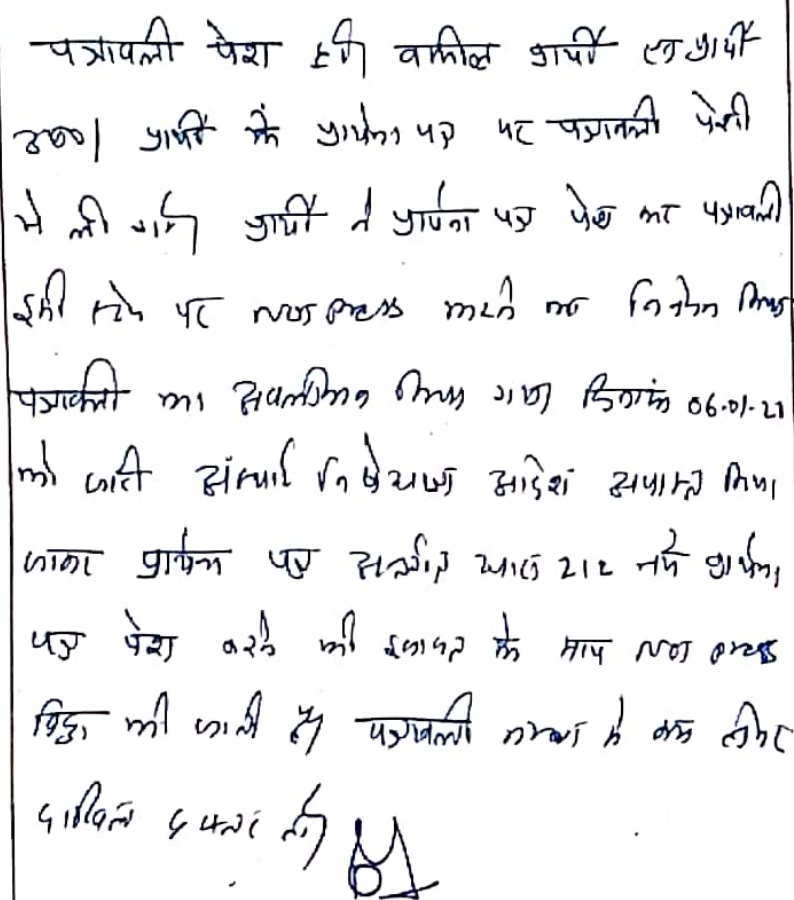 पत्रावली पेश हुई। वकील प्रार्थी प्रार्थी
उप०। प्रार्थी के प्रार्थना पत्र पर पत्रावली पेशी
में ली गई। प्रार्थी ने प्रार्थना पत्र पेश कर पत्रावली
इसी स्टेज पर not press करने का निवेदन किया
पत्रावली का अवलोकन किया गया दिनांक 06-01-21
को जारी अंस्थाई निषेधाज्ञा आदेश अपास्त किया
जाकर प्रार्थना पत्र अन्तर्गत धारा 212 नये प्रार्थना
पत्र पेश करने की इजाजत के साथ not press
की जाती है। पत्रावली नम्बर से कम होकर
दाखिल दफ्तर हो।